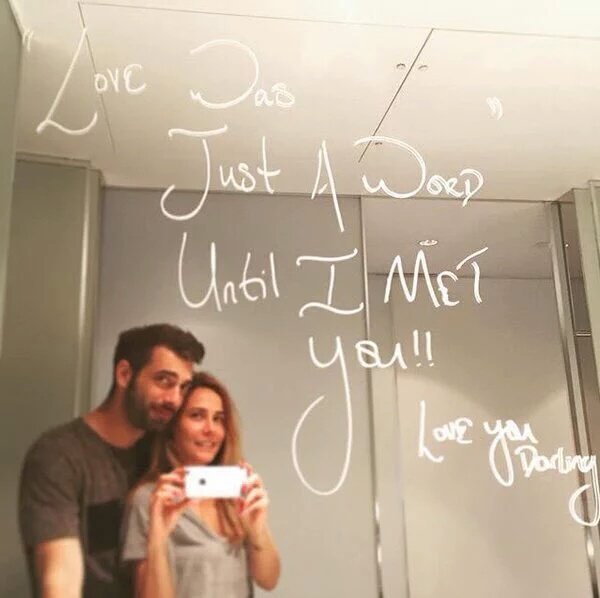 "Love Was
Just A Word"
Until I Met
you!!
Love you
Darling